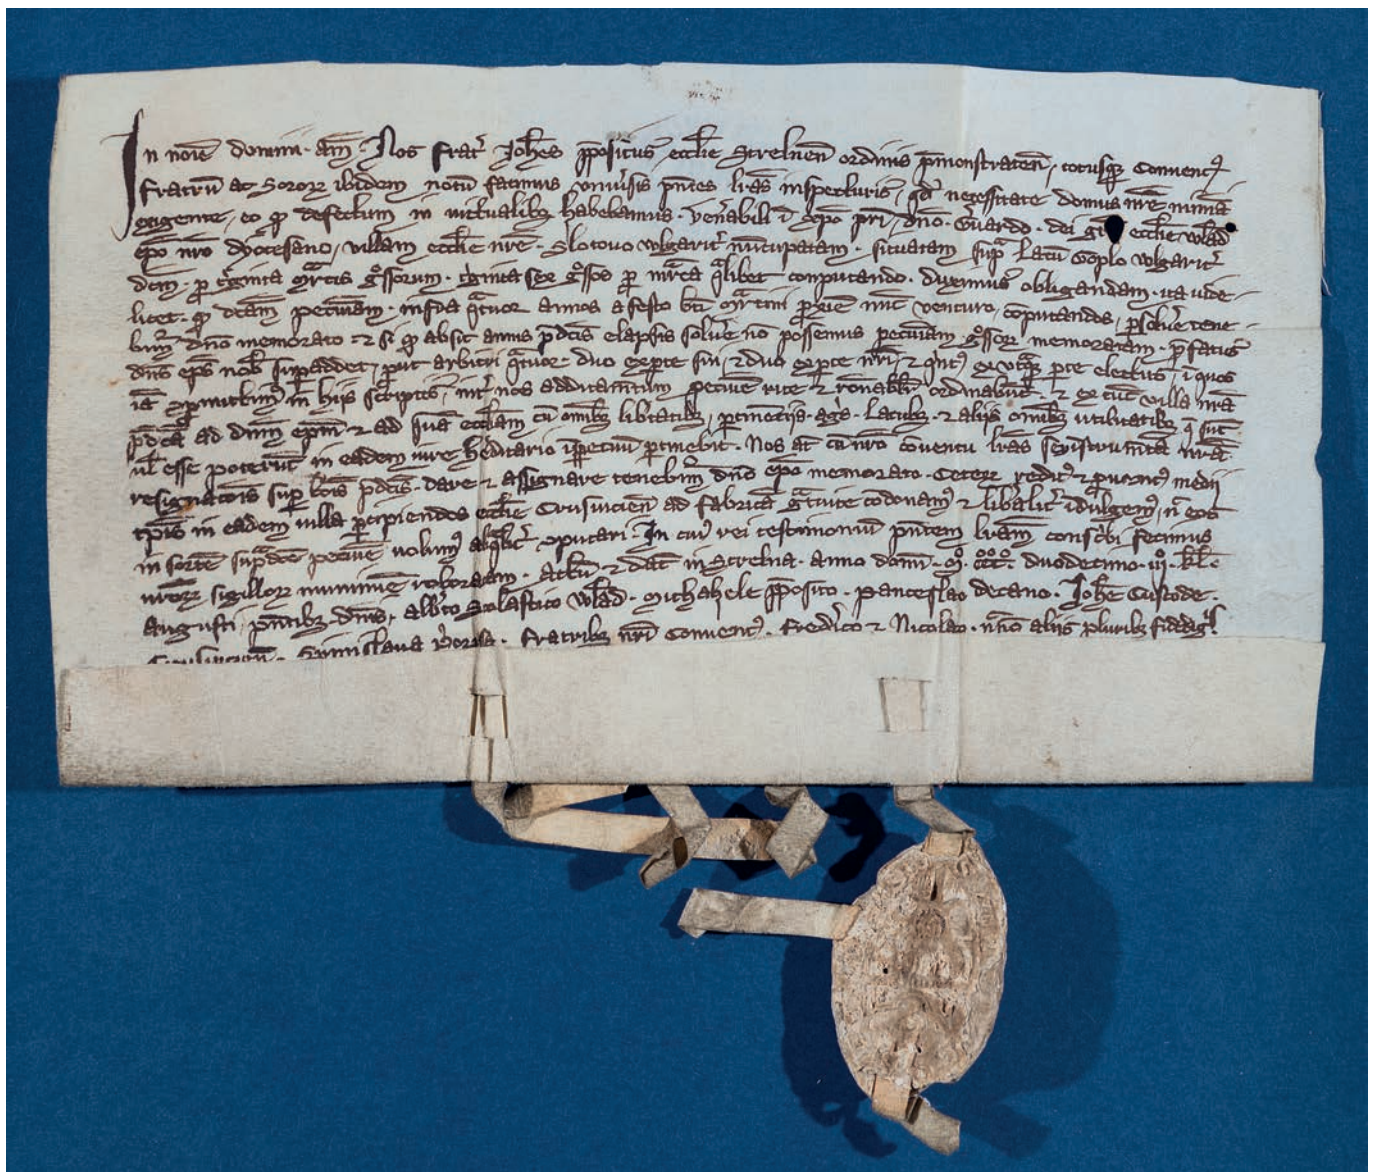 In noie domini am Nos Frat' Johes ppositus ecctie Strelnen ordinis pmonstraten, totusq Convent9
Fratru ac Soror ibidem notu facimus univsis pntes lras inspecturis, qd necessitate domus nre nimia
exigente, eo q defectum in victualib habebamus venabili i xpo pri, dno Gerardo dei gra ecctie wlad
epo nro dyocesano, villam ecctie nre Slotovo wlgarit nuncupatam situatam sup Lacu Goplo wlgarit
dcm p triginta marcis grossorum triginta sex grossos p marca qlibet computando duximus obligandam ita vide
licet q dcam pecuniam infra qtuor annos a festo bti Martini pxie nuc venturo, coputandos, psolve tene
bim dno memorato et si q absit annis pdcis elapsis solve no possemus pecuniam grossor memoratam pfatus
dns eps nob supaddet, put arbitri qtuor duo ex pte sui et duo ex pte nri et qint9 ex utraq pte electus, i quos
ia pmittim in hiis scriptis, int nos additamentum pecunie rite et ronabilit ordinabut et ex tuc villa nra
pdca ad dnm epm et ad sua ecctiam cu omib libtatib, ptinetiis agis lacub et aliis omib utilitatib q sut
ul esse poterut in eadem iure heditario ippetuu ptinebit Nos at cu nro coventu lras seu instrumta nra
resignatois sup bois pdcis dare et assignare tenebim dno epo memorato Ceter reddit9 et pvent9 medii
tpis in eadem villa pcipiendos ecctie Crusvicien ad fabrica gtuite codonam9 et libalit idulgem9, n eos
in sorte supdce pecunie volum9 aliqlit oputari In cui9 rei testimoniu pntem lram conscbi fecimus
nror sigillor munimie roboratam Actu et dat in Strelna anno domi mo ccco duodecimo iijo kl
Augusti, pntib dnis, albto Scolastico wlad Michahele pposito Panceslao decano Johe Custode
Crusvicien Spinislava Priorissa Fratrib nri Convent9 Fredrico et Nicolao nno aliis plurib fidedig9